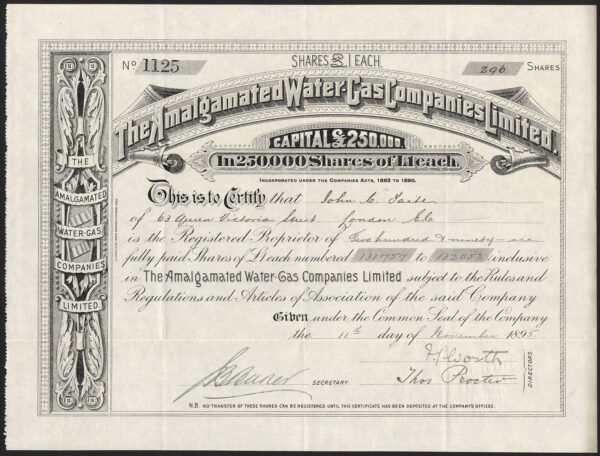 SHARES £1 EACH
Nº 1125
296 SHARES
The Amalgamated Water-Gas Companies Limited.
CAPITAL £250,000.
In 250,000 Shares of £1 each.
INCORPORATED UNDER THE COMPANIES ACTS, 1862 TO 1890.
This is to Certify that John C.
of 63 Queen Victoria Street, London E.C.
is the Registered Proprietor of Two hundred & ninety-six
fully paid Shares of £1 each numbered 131757 to 132052 inclusive
in The Amalgamated Water-Gas Companies Limited subject to the Rules and
Regulations and Articles of Association of the said Company
Given under the Common Seal of the Company
the 11th day of November 1895
SECRETARY.
Worth
Thos Procter
DIRECTORS.
N.B. NO TRANSFER OF THESE SHARES CAN BE REGISTERED UNTIL THIS CERTIFICATE HAS BEEN DEPOSITED AT THE COMPANY'S OFFICES.
THE
AMALGAMATED
WATER-GAS
COMPANIES
LIMITED